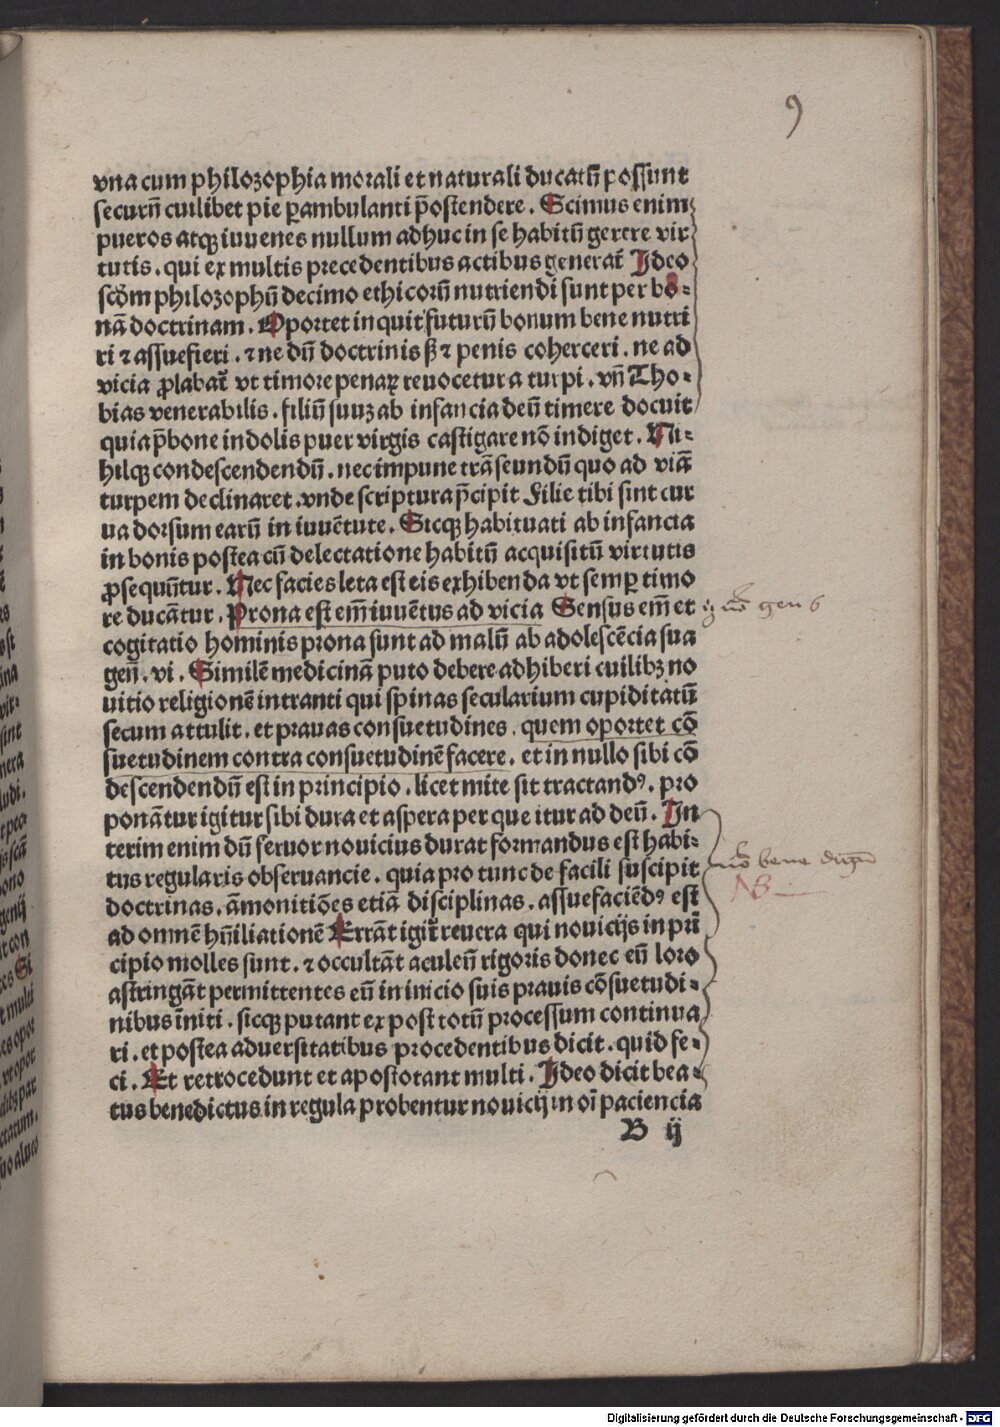 9
vna cum philozophia morali et naturali ducatū possunt
securū cuilibet pie ꝑambulanti p̄ostendere. Scimus enim
pueros atqꝫ iuuenes nullum adhuc in se habitū gerere vir
tutis. qui ex multis precedentibus actibus generat᷑ Ideo
scd̓m philozophū decimo ethicorū nutriendi sunt per bo-
nā doctrinam. Oportet inquit futurū bonum bene nutri
ri ⁊ assuefieri. ⁊ ne dū doctrinis sꝫ ⁊ penis coherceri. ne ad
vicia ꝓlabat᷑ vt timore penaꝝ reuocetur a turpi. vn̄ Tho-
bias venerabilis. filiū suuꝫ ab infancia deū timere docuit
quia p̄bone indolis puer virgis castigare nō indiget. Ni-
hilqꝫ condescendendū. nec impune trāseundū quo ad viā
turpem declinaret. vnde scriptura p̄cipit Filie tibi sint cur
ua dorsum earū in iuuētute. Sicqꝫ habituati ab infancia
in bonis postea cū delectatione habitū acquisitū virtutis
ꝓsequūtur. Nec facies leta est eis exhibenda vt semꝑ timo
re ducātur. Prona est em̄ iuuētus ad vicia Sensus em̄ et
gen 6
cogitatio hominis prona sunt ad malū ab adolescēcia sua
geñ. vi. Similē medicinā puto debere adhiberi cuilibꝫ no
uitio religionē intranti qui spinas secularium cupiditatū
secum attulit. et prauas consuetudines. quem oportet cō
suetudinem contra consuetudinē facere. et in nullo sibi cō
descendendū est in principio. licet mite sit tractandꝰ. pro
ponātur igitur sibi dura et aspera per que itur ad deū. In
terim enim dū feruor nouicius durat formandus est habi-
tus regularis obseruancie. quia pro tunc de facili suscipit
bene
NB
doctrinas. āmonitiōes etiā disciplinas. assuefaciēdꝰ est
ad omnē hūiliationē Errāt igit᷑ reuera qui nouicijs in pri
cipio molles sunt. ⁊ occultāt aculeū rigoris donec eū loro
astringāt permittentes eū in inicio suis prauis cōsuetudi-
nibus īniti. sicqꝫ putant ex post totū processum continua
ri. et postea aduersitatibus procedentibus dicit. quid fe-
ci. Et retrocedunt et apostotant multi. Ideo dicit bea-
tus benedictus in regula probentur nouicij in oī paciencia
B ij
Digitalisierung gefördert durch die Deutsche Forschungsgemeinschaft - DFG